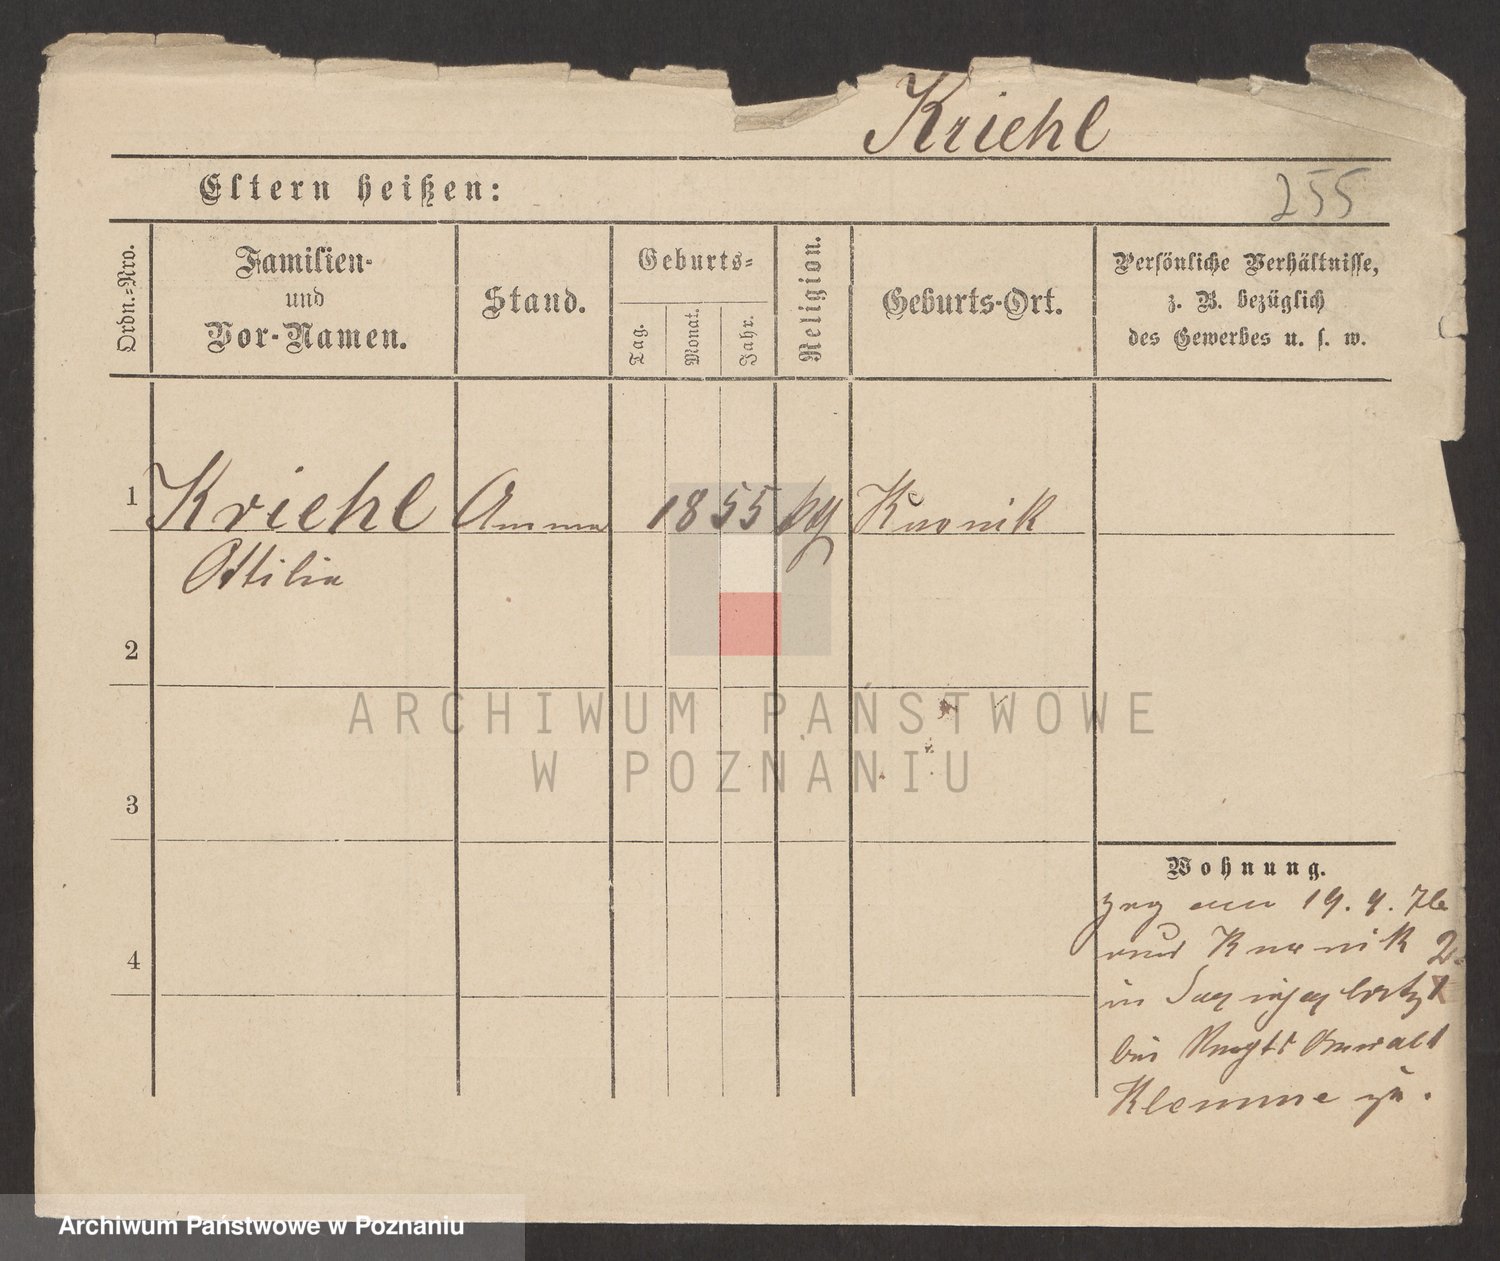 Kriehl
Eltern heißen:
255
Ordn.-Nro.
Familien-
und
Vor-Namen.
Stand.
Geburts-
Tag.
Monat.
Jahr.
Religion.
Geburts-Ort.
Persönliche Verhältnisse,
z. B. bezüglich
des Gewerbes u. s. w.
1 Kriehl Amme 1855 Kurnik
Ottilie
2
3
4
Wohnung.
zog am 19. 9. 76
aus Kurnik
in
bei Anwalt
Klemme zu.
ARCHIWUM PAŃSTWOWE
W POZNANIU
Archiwum Państwowe w Poznaniu